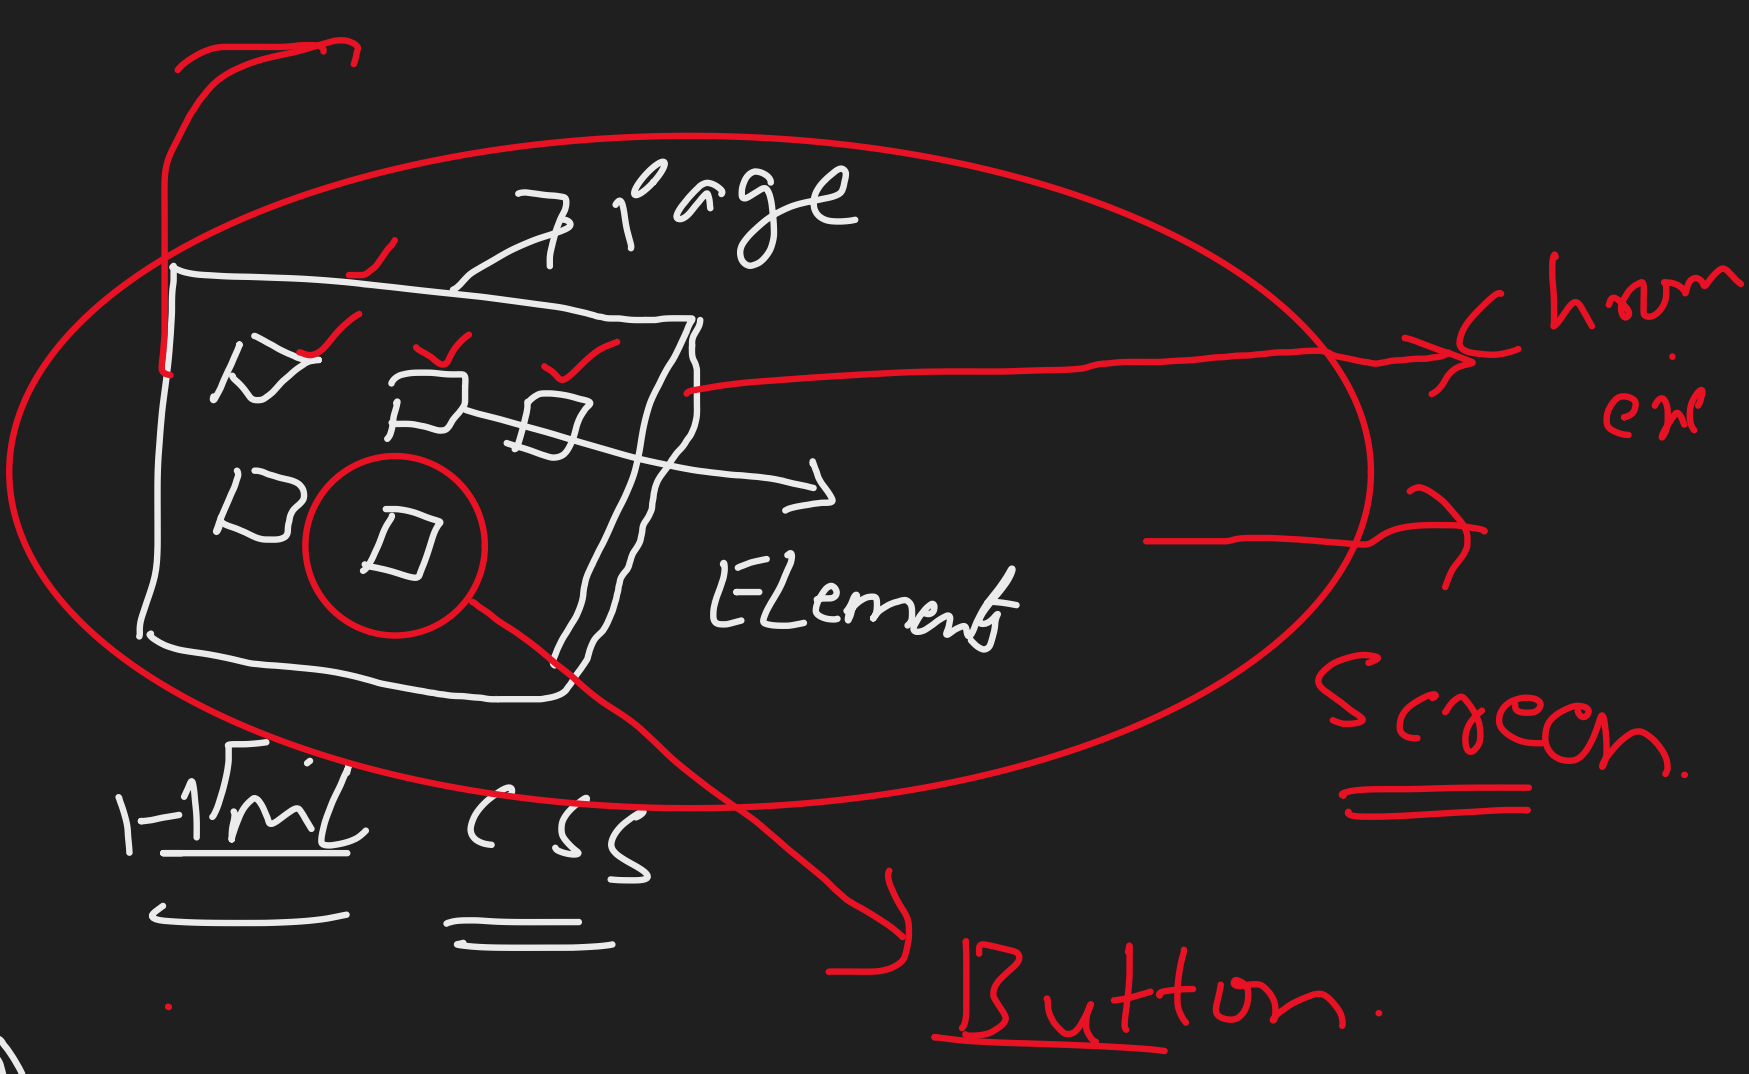 Page
Chrom
exe
ELements
Screen.
HTmL css
Button.